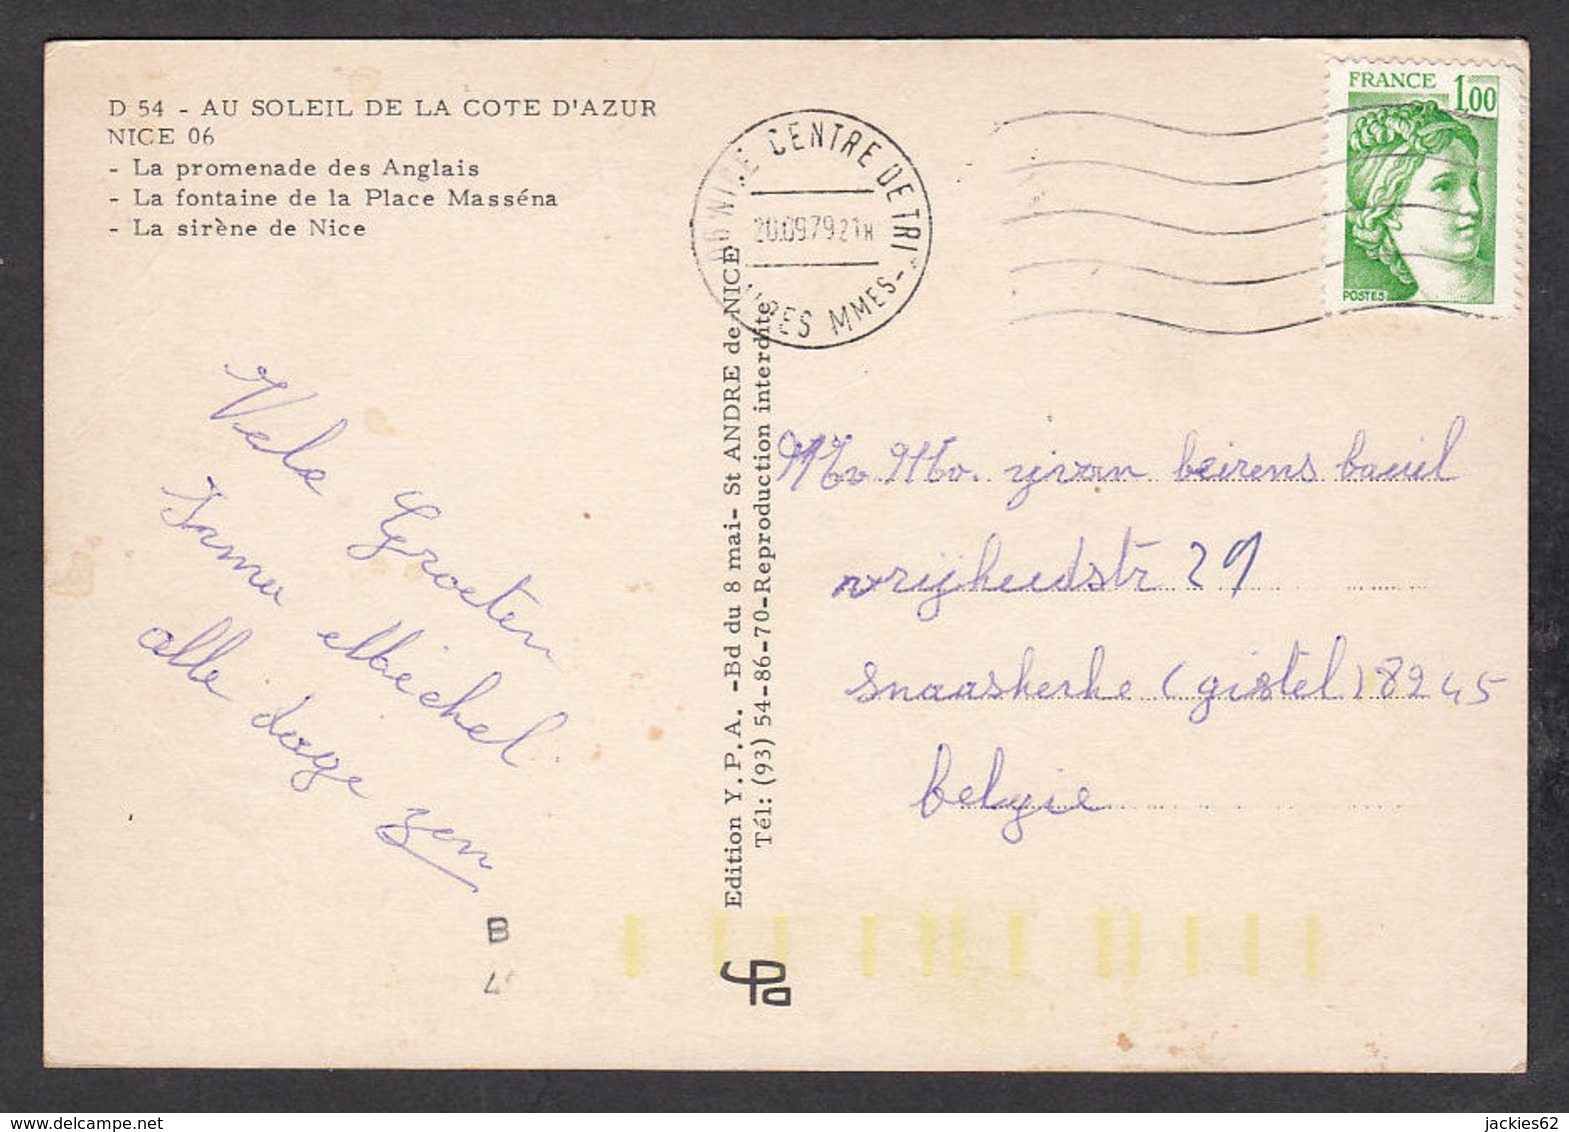 D 54 - AU SOLEIL DE LA COTE D'AZUR
NICE 06
- La promenade des Anglais
- La fontaine de la Place Masséna
- La sirène de Nice
Vele Groeten
Irma Michel
alle dage zon
B
Edition Y.P.A. -Bd du 8 mai- St ANDRE de NICE
Tél: (93) 54-86-70-Reproduction interdite
06 NICE CENTRE DE TRI
20.09.79 21H
MMES-
FRANCE 1.00
POSTES
yvan beirens
vrijheidstr 29
snaaskerke (gistel) 8245
belgie
jackies62